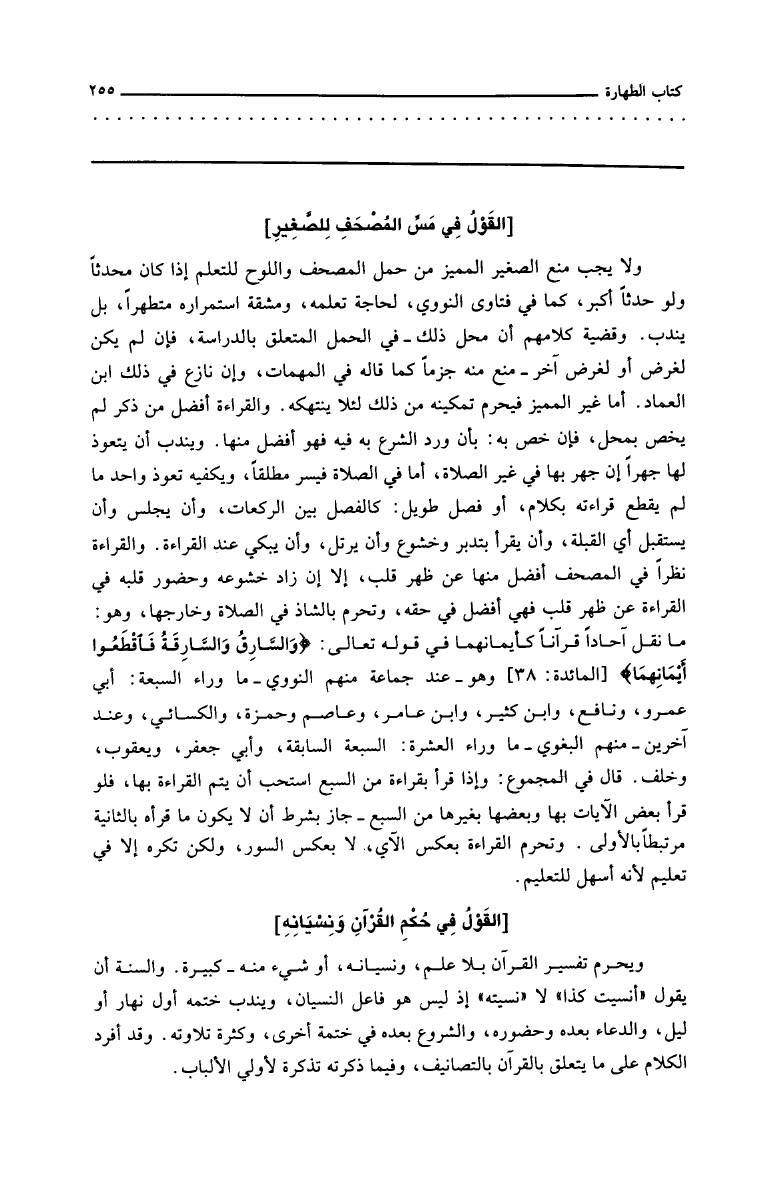 كتاب الطهارة ٢٥٥
[القَوْلُ فِي مَسِّ المُصْحَفِ لِلصَّغِيرِ]
ولا يجب منع الصغير المميز من حمل المصحف واللوح للتعلم إذا كان محدثاً
ولو حدثاً أكبر، كما في فتاوى النووي، لحاجة تعلمه، ومشقة استمراره متطهراً، بل
يندب. وقضية كلامهم أن محل ذلك - في الحمل المتعلق بالدراسة، فإن لم يكن
لغرض أو لغرض آخر - منع منه جزماً كما قاله في المهمات، وإن نازع في ذلك ابن
العماد. أما غير المميز فيحرم تمكينه من ذلك لئلا ينتهكه. والقراءة أفضل من ذكر لم
يخص بمحل، فإن خص به: بأن ورد الشرع به فيه فهو أفضل منها. ويندب أن يتعوذ
لها جهراً إن جهر بها في غير الصلاة، أما في الصلاة فيسر مطلقاً، ويكفيه تعوذ واحد ما
لم يقطع قراءته بكلام، أو فصل طويل: كالفصل بين الركعات، وأن يجلس وأن
يستقبل أي القبلة، وأن يقرأ بتدبر وخشوع وأن يرتل، وأن يبكي عند القراءة. والقراءة
نظراً في المصحف أفضل منها عن ظهر قلب، إلا إن زاد خشوعه وحضور قلبه في
القراءة عن ظهر قلب فهي أفضل في حقه، وتحرم بالشاذ في الصلاة وخارجها، وهو:
ما نقل آحاداً قرآناً كأيمانهما في قوله تعالى: ﴿وَالسَّارِقُ وَالسَّارِقَةُ فَاقْطَعُوا
أَيْمَانِهِمَا﴾ [المائدة: ٣٨] وهو - عند جماعة منهم النووي - ما وراء السبعة: أبي
عمرو، ونافع، وابن كثير، وابن عامر، وعاصم وحمزة، والكسائي، وعند
آخرين - منهم البغوي - ما وراء العشرة: السبعة السابقة، وأبي جعفر، ويعقوب،
وخلف. قال في المجموع: وإذا قرأ بقراءة من السبع استحب أن يتم القراءة بها، فلو
قرأ بعض الآيات بها وبعضها بغيرها من السبع - جاز بشرط أن لا يكون ما قرأه بالثانية
مرتبطاًبالأولى . وتحرم القراءة بعكس الآي، لا بعكس السور، ولكن تكره إلا في
تعليم لأنه أسهل للتعليم.
[القَوْلُ فِي حُكْمِ القُرْآنِ وَنِسْيَانِهِ]
ويحرم تفسير القرآن بلا علم، ونسيانه، أو شيء منه - كبيرة. والسنة أن
يقول «أنسيت كذا» لا «نسيته» إذ ليس هو فاعل النسيان، ويندب ختمه أول نهار أو
ليل، والدعاء بعده وحضوره، والشروع بعده في ختمة أخرى، وكثرة تلاوته. وقد أفرد
الكلام على ما يتعلق بالقرآن بالتصانيف، وفيما ذكرته تذكرة لأولي الألباب.